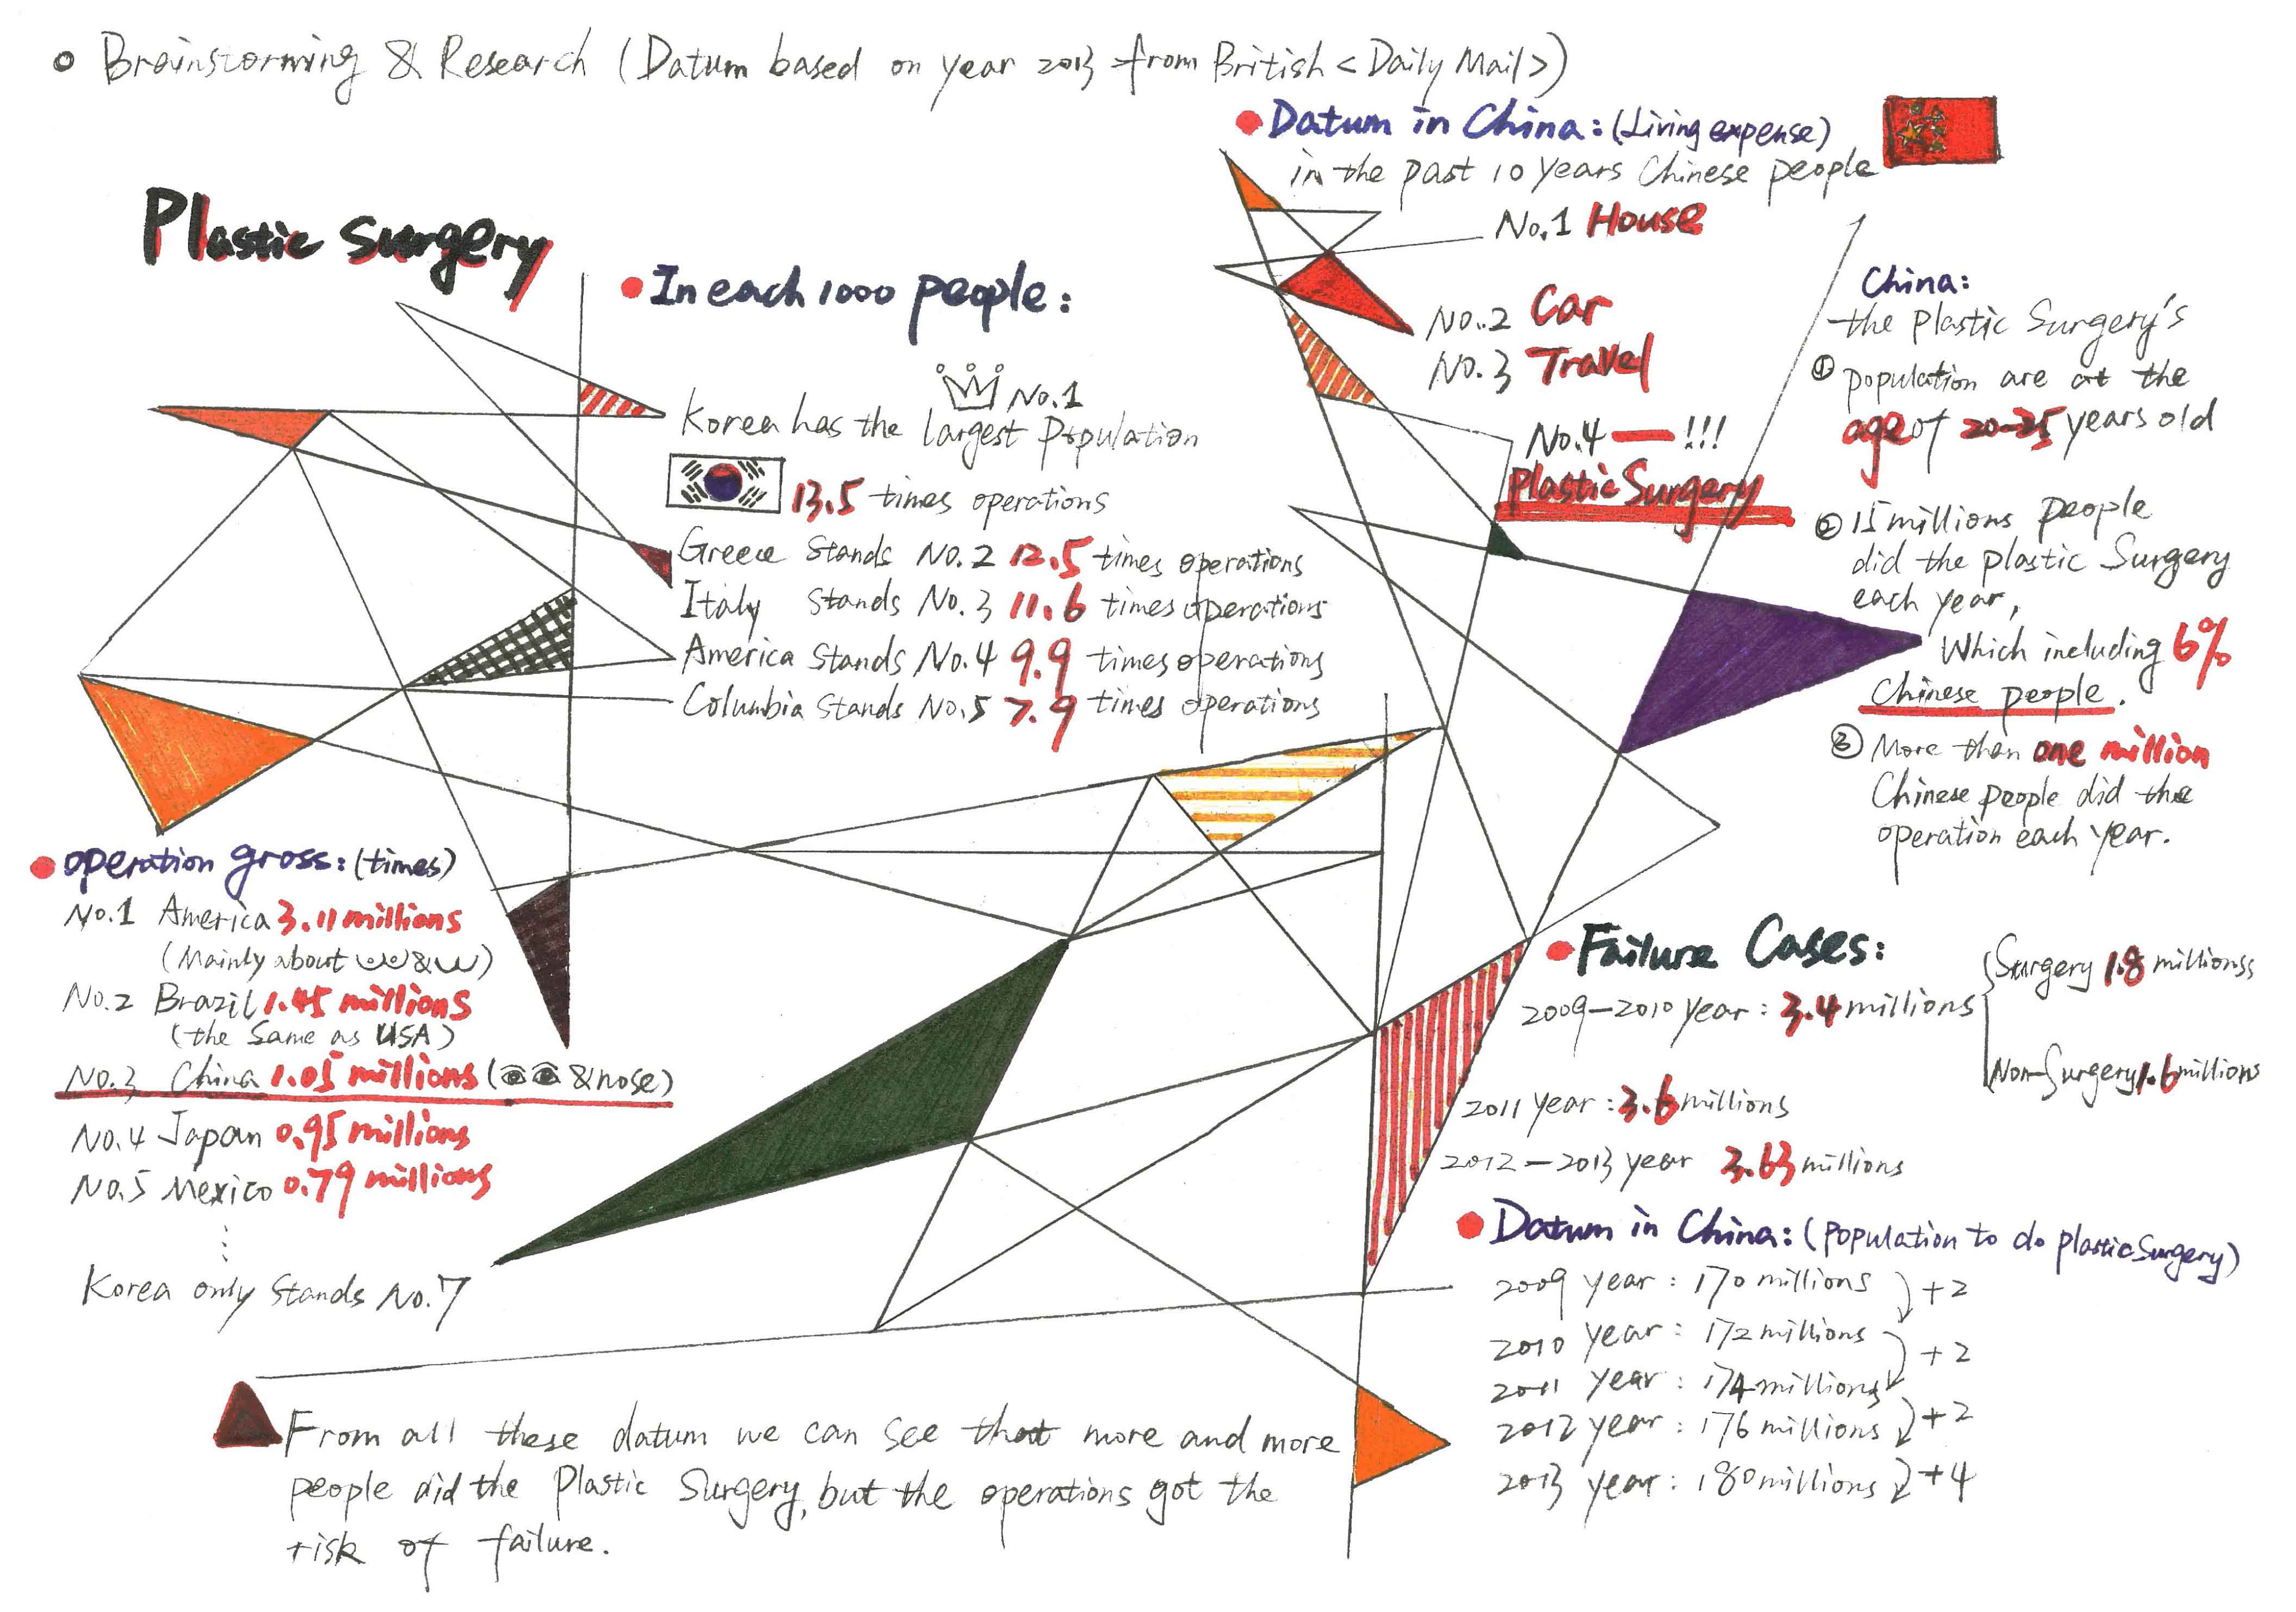 Brainstorming & Research (Datum based on year 2013 from British <Daily Mail>)
Plastic Surgery
In each 1000 people:
No.1
Korea has the largest Population
13.5 times operations
Greece Stands No.2 12.5 times operations
Italy Stands No.3 11.6 times operations
America Stands No.4 9.9 times operations
Columbia Stands No.5 7.9 times operations
operation gross: (times)
No.1 America 3.11 millions
(Mainly about & )
No.2 Brazil 1.45 millions
(the Same as USA)
No.3 China 1.05 millions ( & nose)
No.4 Japan 0.95 millions
No.5 Mexico 0.79 millions
⋮
Korea only Stands No.7
From all these datum we can see that more and more
people did the Plastic Surgery, but the operations got the
risk of failure.
Datum in China: (Living expense)
in the past 10 years Chinese people
No.1 House
No.2 Car
No.3 Travel
No.4 — !!!
Plastic Surgery
China:
the Plastic Surgery's
① population are at the
age of 20-25 years old
② 15 millions people
did the plastic Surgery
each year,
Which including 6%
Chinese people.
③ More than one million
Chinese people did the
operation each year.
Failure Cases:
2009-2010 year: 3.4 millions
Surgery 1.8 millionss
Non-Surgery 1.6 millions
2011 year: 3.6 millions
2012-2013 year 3.63 millions
Datum in China: (population to do plastic Surgery)
2009 year: 170 millions +2
2010 year: 172 millions +2
2011 year: 174 millions
2012 year: 176 millions +2
2013 year: 180 millions +4